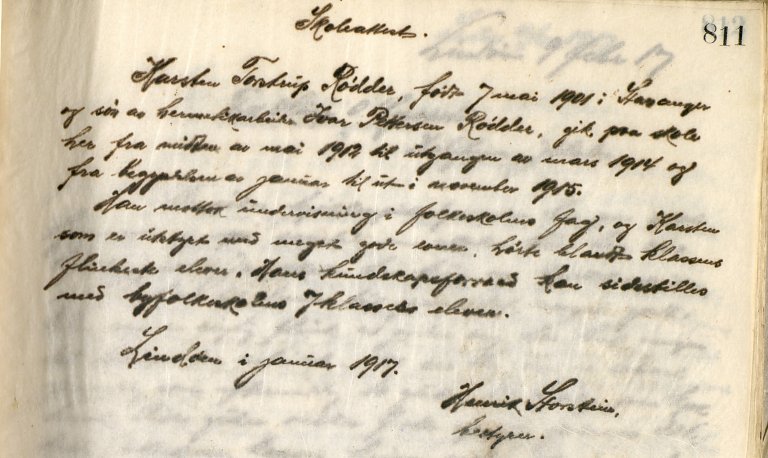 811
Skoleattest.
Karsten Torstrup Rödder, födt 7 mai 1901 i Stavanger
og sön av hermetikkarbeider Ivar Petersen Rödder, gik paa skole
her fra midten av mai 1912 til utgangen av mars 1914 og
fra begyndelsen av januar til ut i november 1915.
Han mottok undervisning i folkeskolens fag, og Karsten
som er utstyrt med meget gode evner, hörte blandt klassens
flinkeste elever. Hans kundskapsforraad kan sidestilles
med byfolkeskolens 7 klasses elever.
Lindöen i januar 1917.
Henrik
bestyrer.